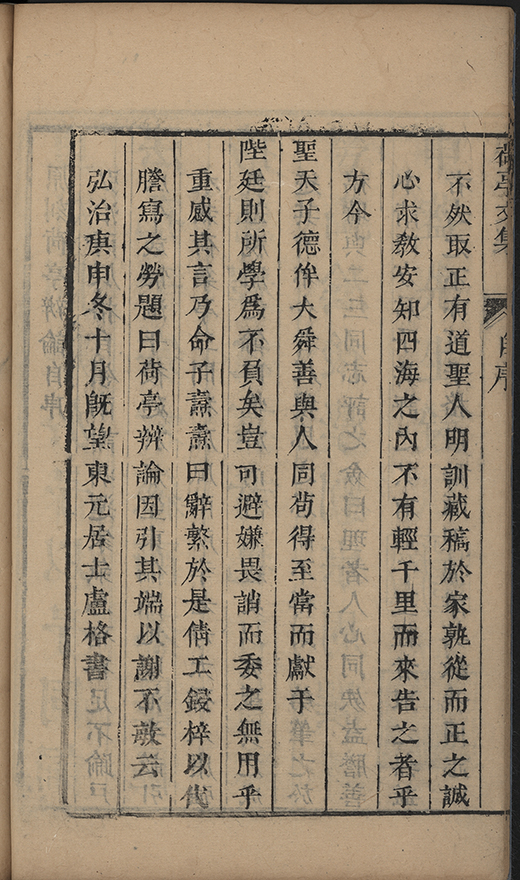 荷亭文集 自序
不然取正有道聖人明訓藏稿於家孰從而正之誠
心求教安知四海之內不有輕千里而來告之者乎
方今
聖天子德侔大舜善與人同苟得至當而獻于
陛廷則所學爲不負矣豈可避嫌畏誚而委之無用乎
重感其言乃命子燾燾曰辭繁於是倩工鋟梓以代
謄寫之勞題曰荷亭辨論因引其端以謝不敏云
弘治庚申冬十月旣望東元居士盧格書